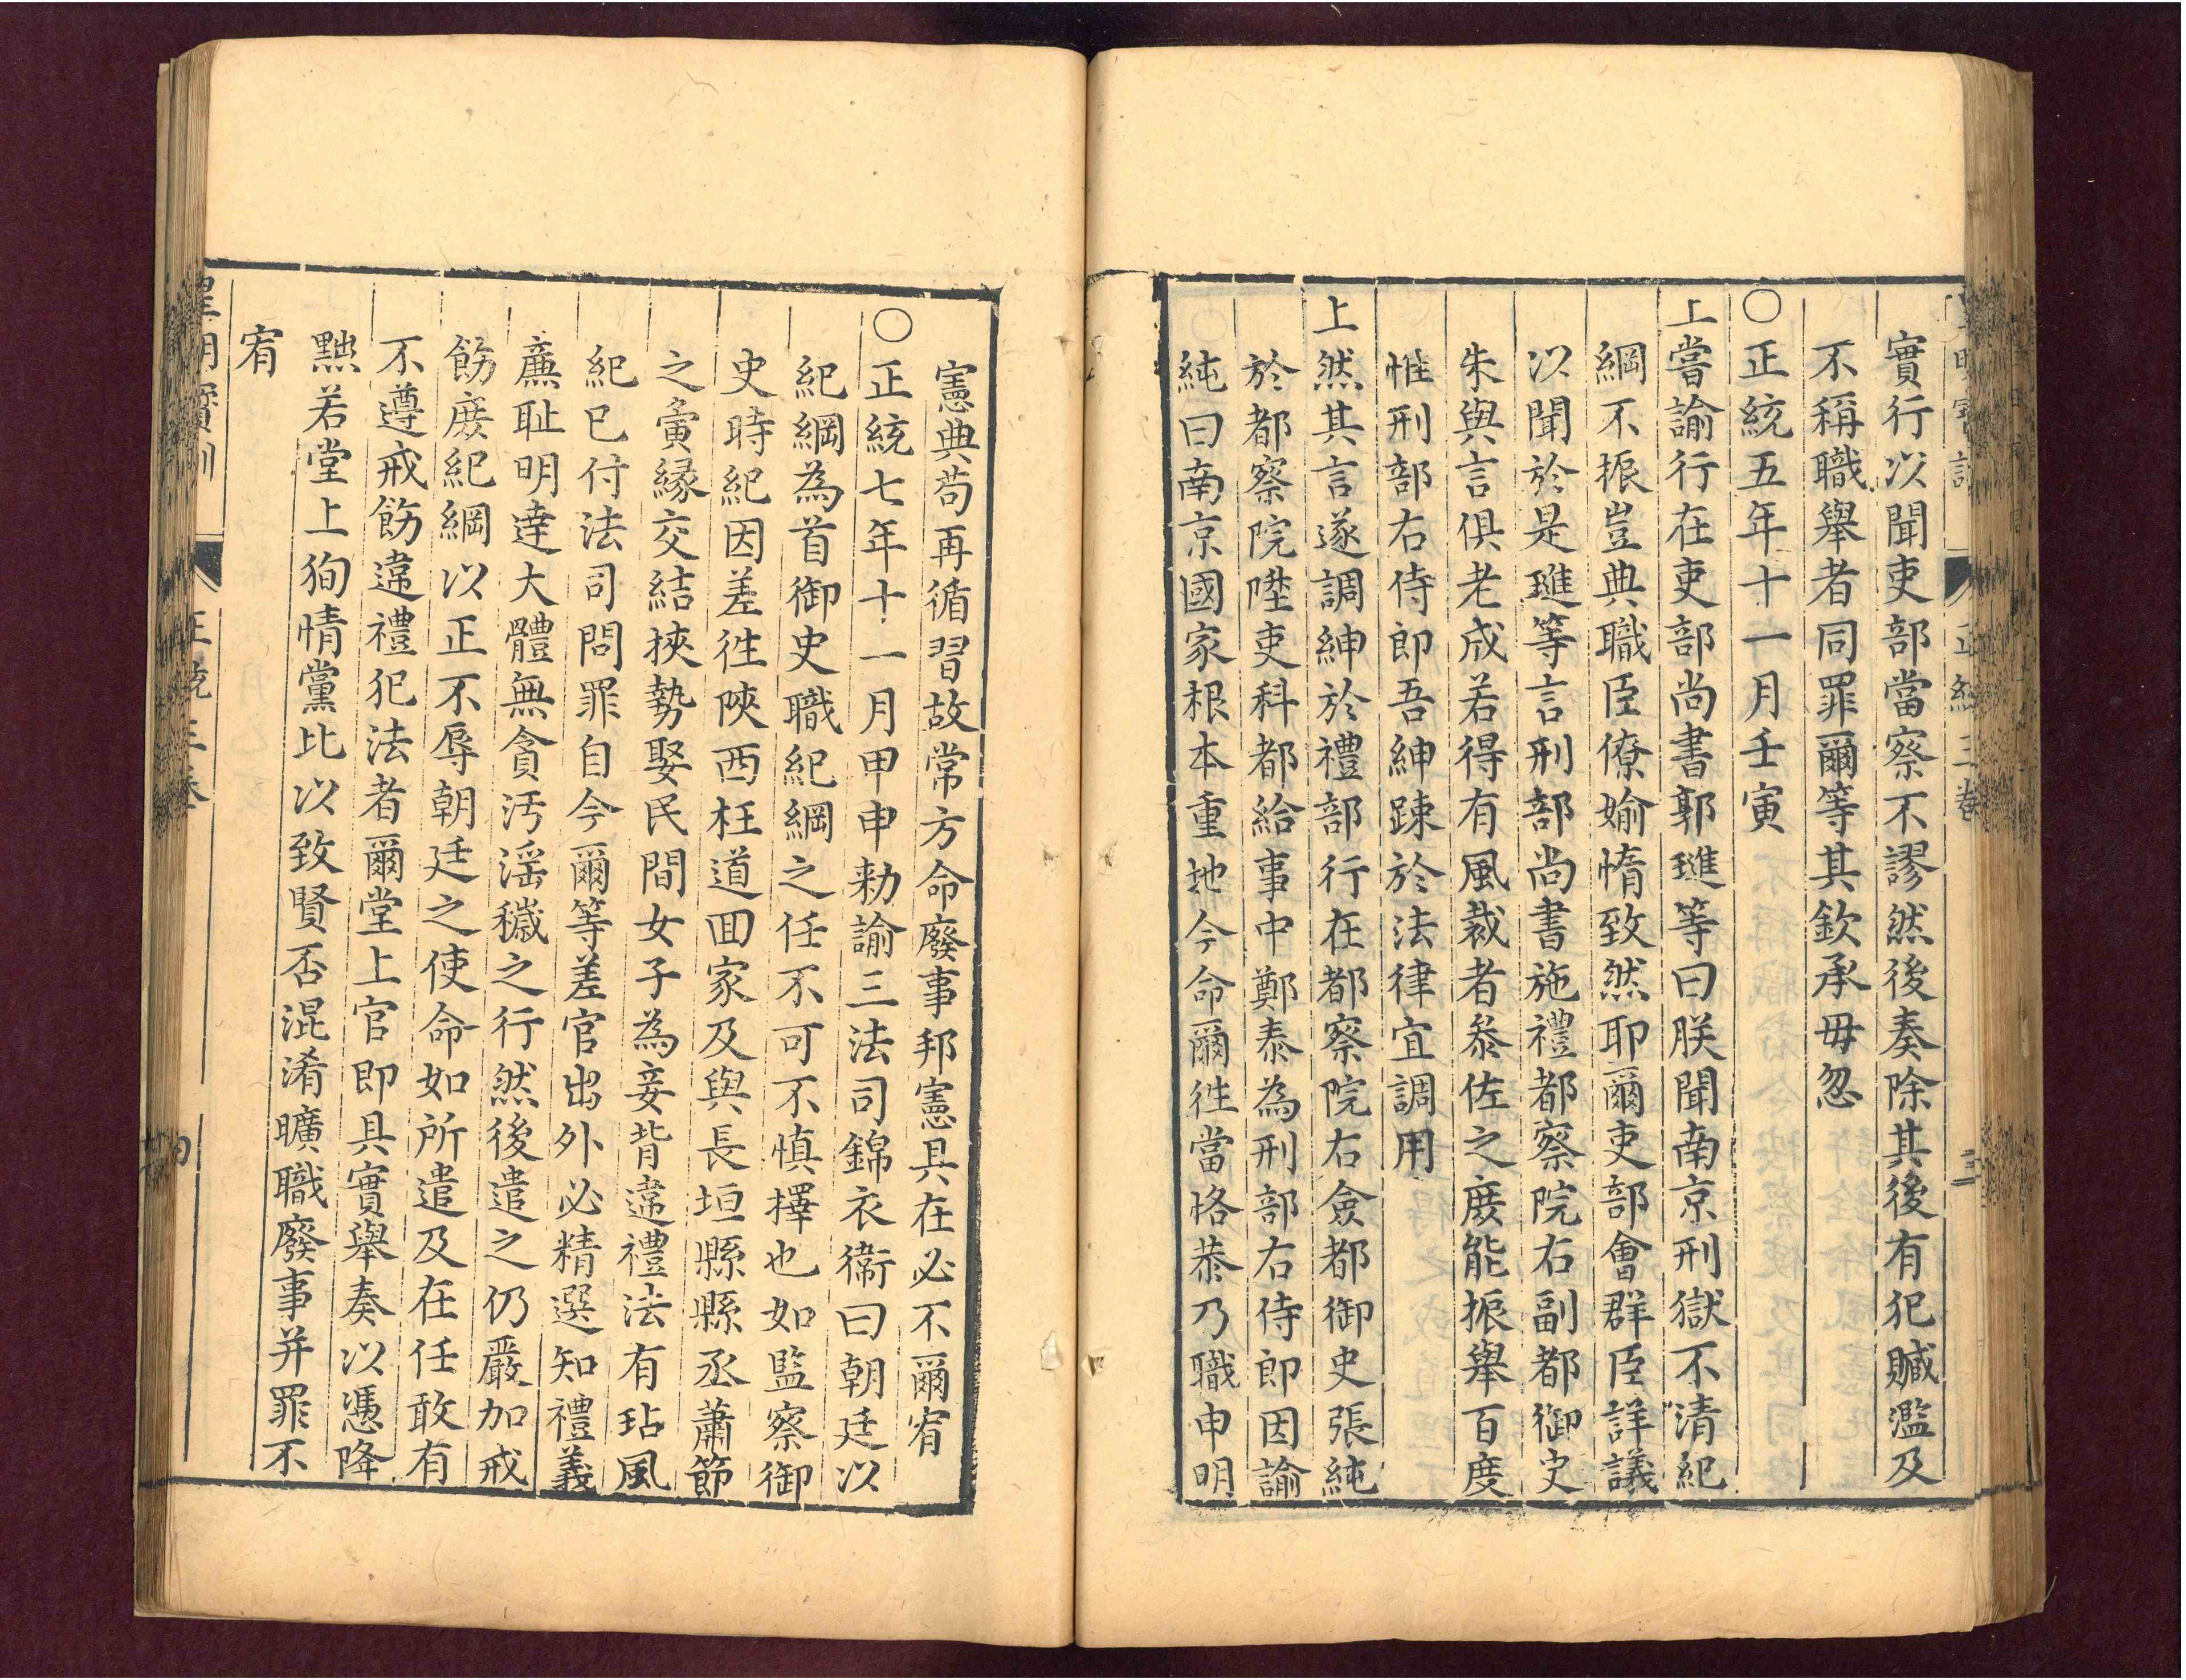 實行以聞吏部當察不謬然後奏除其後有犯贓濫及
不稱職舉者同罪爾等其欽承毋忽
○正統五年十一月壬寅
上嘗諭行在吏部尚書郭璡等曰朕聞南京刑獄不清紀
綱不振豈典職臣僚媮惰致然耶爾吏部會群臣詳議
以聞於是璡等言刑部尚書施禮都察院右副都御史
朱與言俱老成若得有風裁者叅佐之庻能振舉百度
惟刑部右侍郎吾紳踈於法律宜調用
上然其言遂調紳於禮部行在都察院右僉都御史張純
於都察院陞吏科都給事中鄭泰為刑部右侍郎因諭
純曰南京國家根本重地今命爾徃當恪恭乃職申明
憲典苟再循習故常方命廢事邦憲具在必不爾宥
○正統七年十一月甲申勑諭三法司錦衣衞曰朝廷以
紀綱為首御史職紀綱之任不可不慎擇也如監察御
史時紀因差徃陝西枉道回家及與長垣縣縣丞蕭節
之夤緣交結挾勢娶民間女子為妾背違禮法有玷風
紀已付法司問罪自今爾等差官出外必精選知禮義
廉耻明達大體無貪汚滛穢之行然後遣之仍嚴加戒
飭庻紀綱以正不辱朝廷之使命如所遣及在任敢有
不遵戒飭違禮犯法者爾堂上官即具實舉奏以憑降
黜若堂上狥情黨比以致賢否混淆曠職廢事并罪不
宥